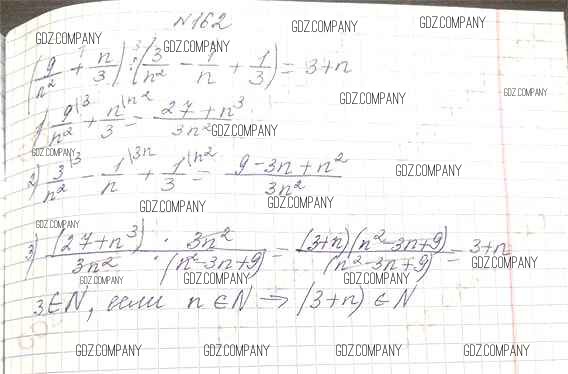 N162
GDZ.COMPANY GDZ.COMPANY GDZ.COMPANY GDZ.COMPANY
(9/n² + n/3) : (3/n² - 1/n + 1/3) = 3+n
GDZ.COMPANY GDZ.COMPANY
1) 9/n² |3 + n/3 |n² = 27+n³/3n²
GDZ.COMPANY GDZ.COMPANY
2) 3/n² |3 - 1/n |3n + 1/3 |n² = 9-3n+n²/3n²
GDZ.COMPANY
GDZ.COMPANY GDZ.COMPANY
GDZ.COMPANY
3) (27+n³)/3n² · 3n²/(n²-3n+9) = (3+n)(n²-3n+9)/(n²-3n+9) = 3+n
GDZ.COMPANY
GDZ.COMPANY GDZ.COMPANY GDZ.COMPANY
3∈N, если n∈N → (3+n)∈N
GDZ.COMPANY GDZ.COMPANY GDZ.COMPANY GDZ.COMPANY